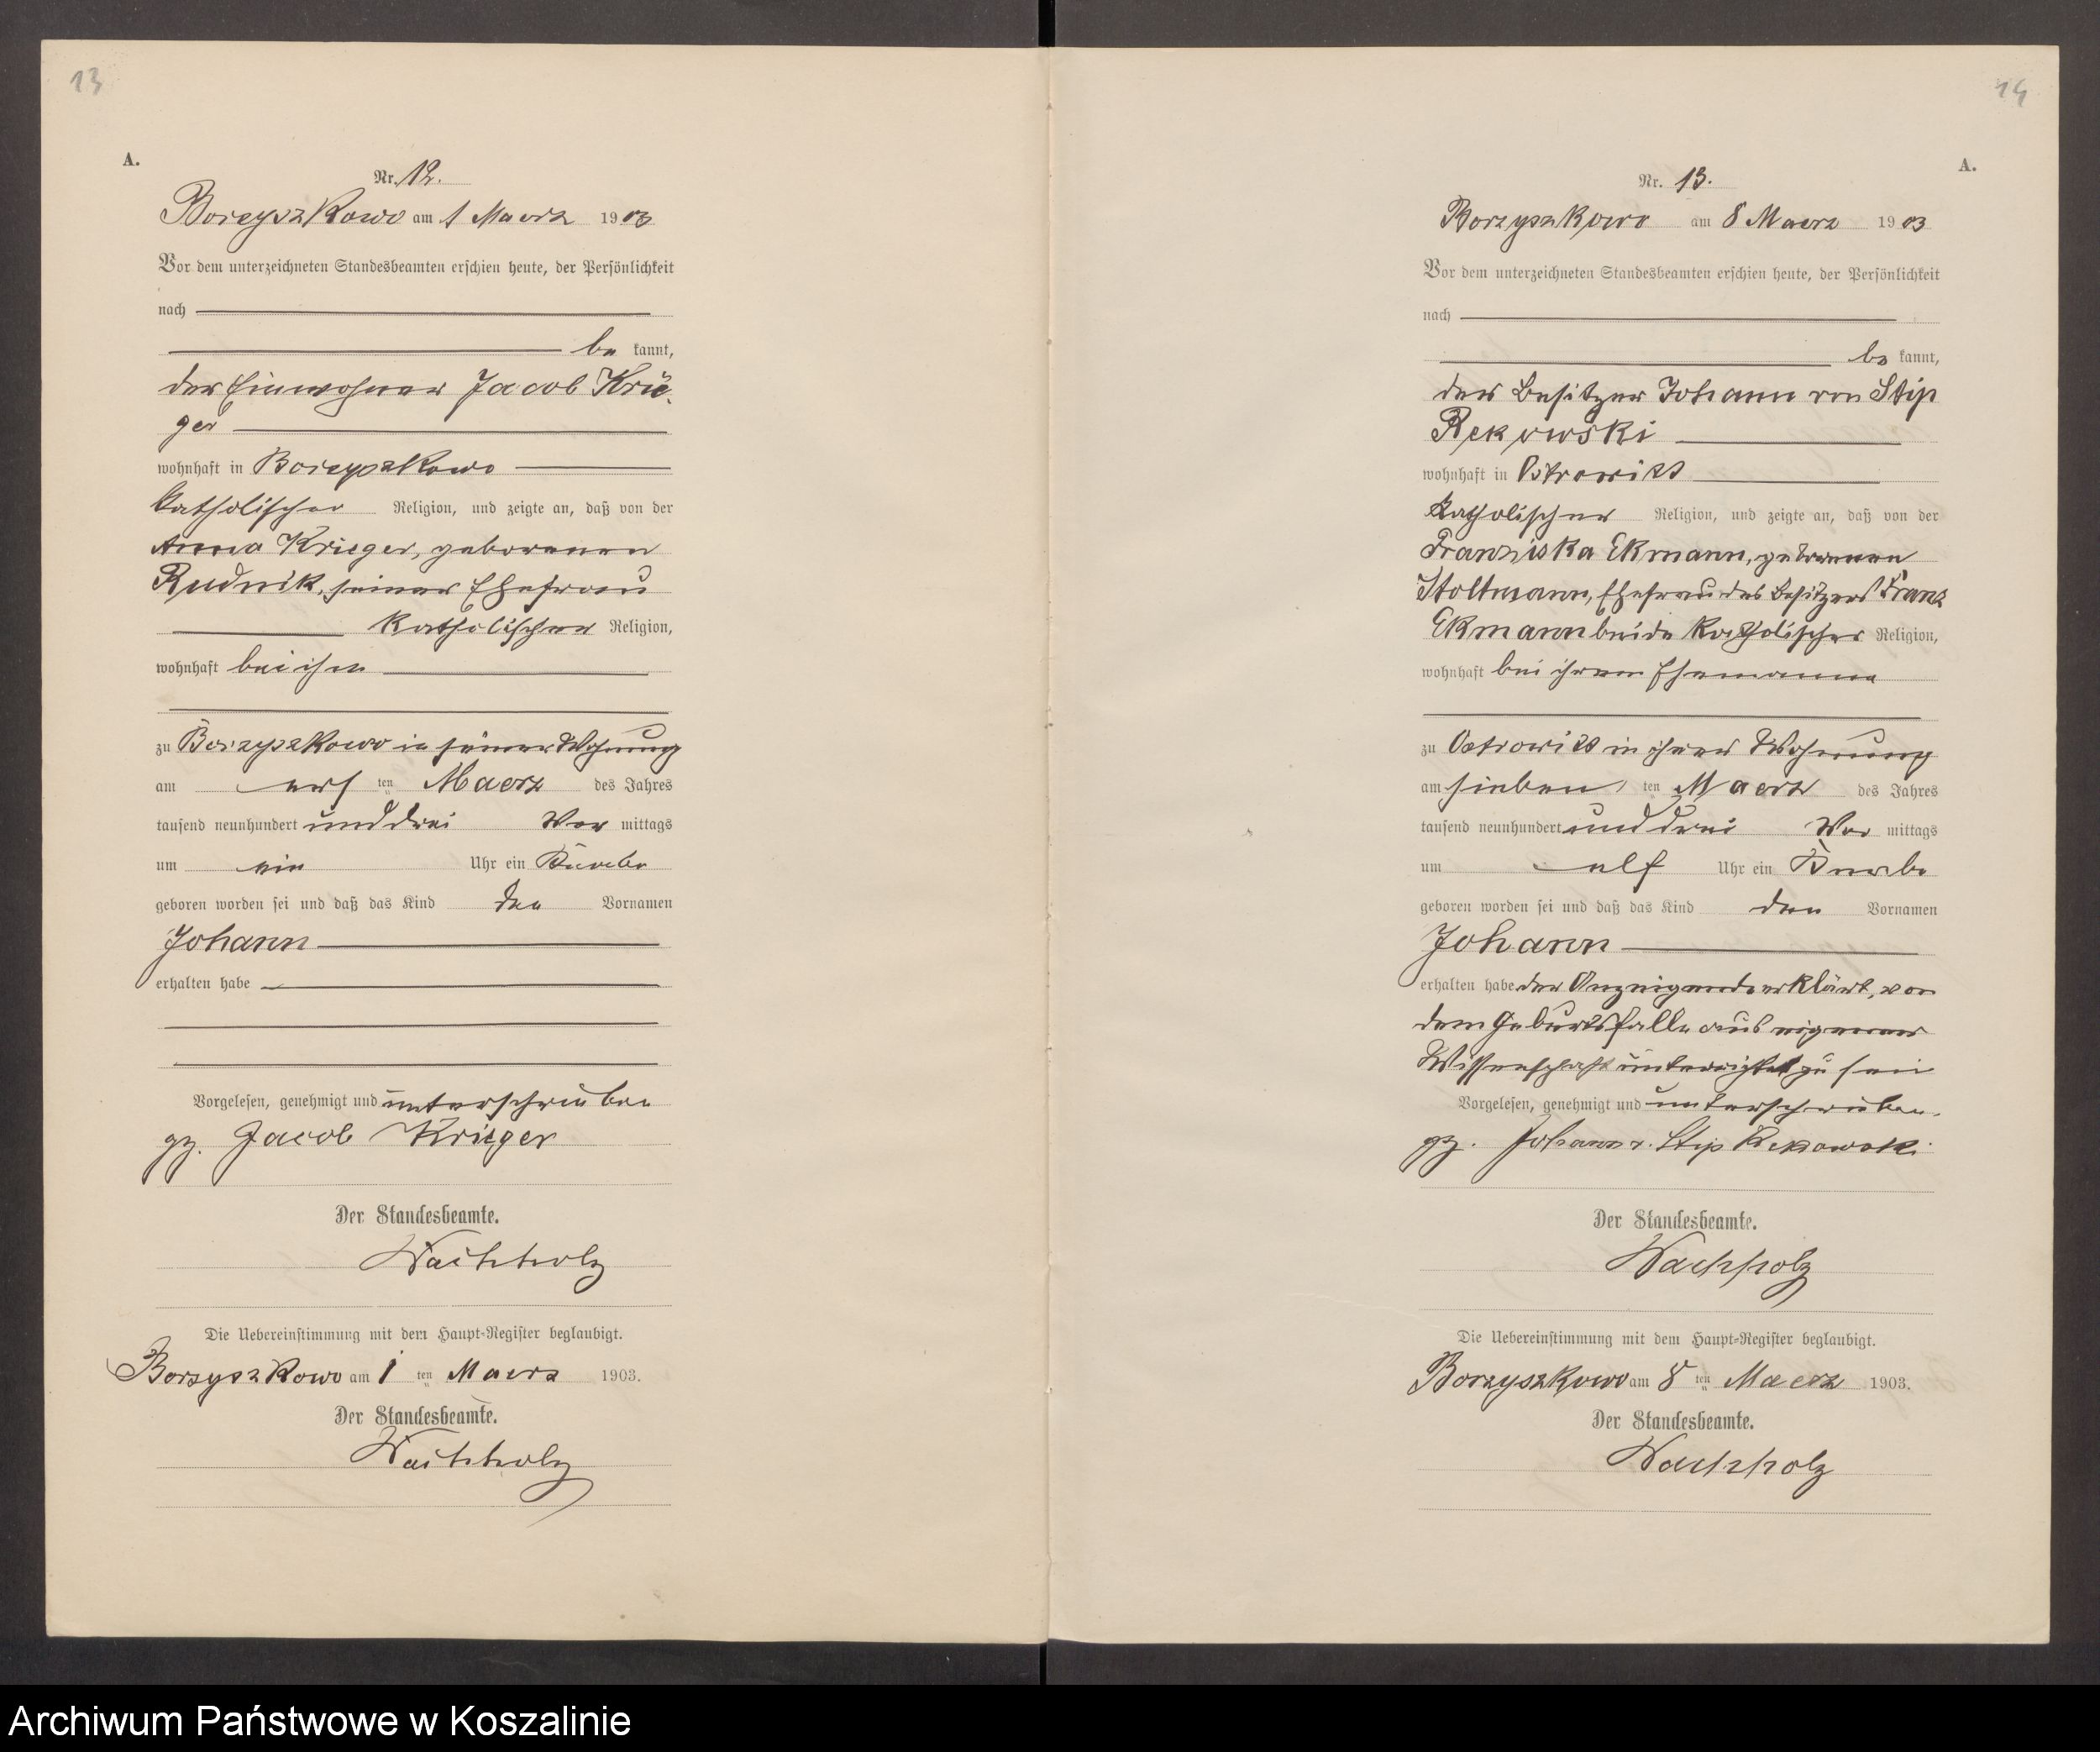 13
A.
Nr. 12.
Borzyszkowo am 1 Maerz 1903
Vor dem unterzeichneten Standesbeamten erschien heute, der Persönlichkeit
nach
be kannt,
der Einwohner Jacob Krie-
ger
wohnhaft in Borzyszkowo
katholischer Religion, und zeigte an, daß von der
Anna Krieger, geborenen
Rudnik, seiner Ehefrau
katholischer Religion,
wohnhaft bei ihm
zu Borzyszkowo in seiner Wohnung
am ersten Maerz des Jahres
tausend neunhundert und drei Vor mittags
um ein Uhr ein Knabe
geboren worden sei und daß das Kind den Vornamen
Johann
erhalten habe
Vorgelesen, genehmigt und unterschrieben
gz. Jacob Krieger
Der Standesbeamte.
Wachholz
Die Uebereinstimmung mit dem Haupt-Register beglaubigt.
Borzyszkowo am 1 ten Maerz 1903.
Der Standesbeamte.
Wachholz
14
A.
Nr. 13.
Borzyszkowo am 8 Maerz 1903
Vor dem unterzeichneten Standesbeamten erschien heute, der Persönlichkeit
nach
be kannt,
der Besitzer Johann von Stip
Rekowski
wohnhaft in Ostrowitt
katholischer Religion, und zeigte an, daß von der
Franziska Ekmann, geborenen
Stoltmann, Ehefrau des Besitzers Franz
Ekmann beide katholischer Religion,
wohnhaft bei ihrem Ehemanne
zu Ostrowitt in ihrer Wohnung
am sieben ten Maerz des Jahres
tausend neunhundert und drei Vor mittags
um elf Uhr ein Knabe
geboren worden sei und daß das Kind den Vornamen
Johann
erhalten habe der Anzeigende erklärt, von
dem Geburtsfalle aus eigener
Wissenschaft unterrichtet zu sein
Vorgelesen, genehmigt und unterschrieben.
gz. Johann v. Stip Rekowski
Der Standesbeamte.
Wachholz
Die Uebereinstimmung mit dem Haupt-Register beglaubigt.
Borzyszkowo am 8 ten Maerz 1903.
Der Standesbeamte.
Wachholz
Archiwum Państwowe w Koszalinie